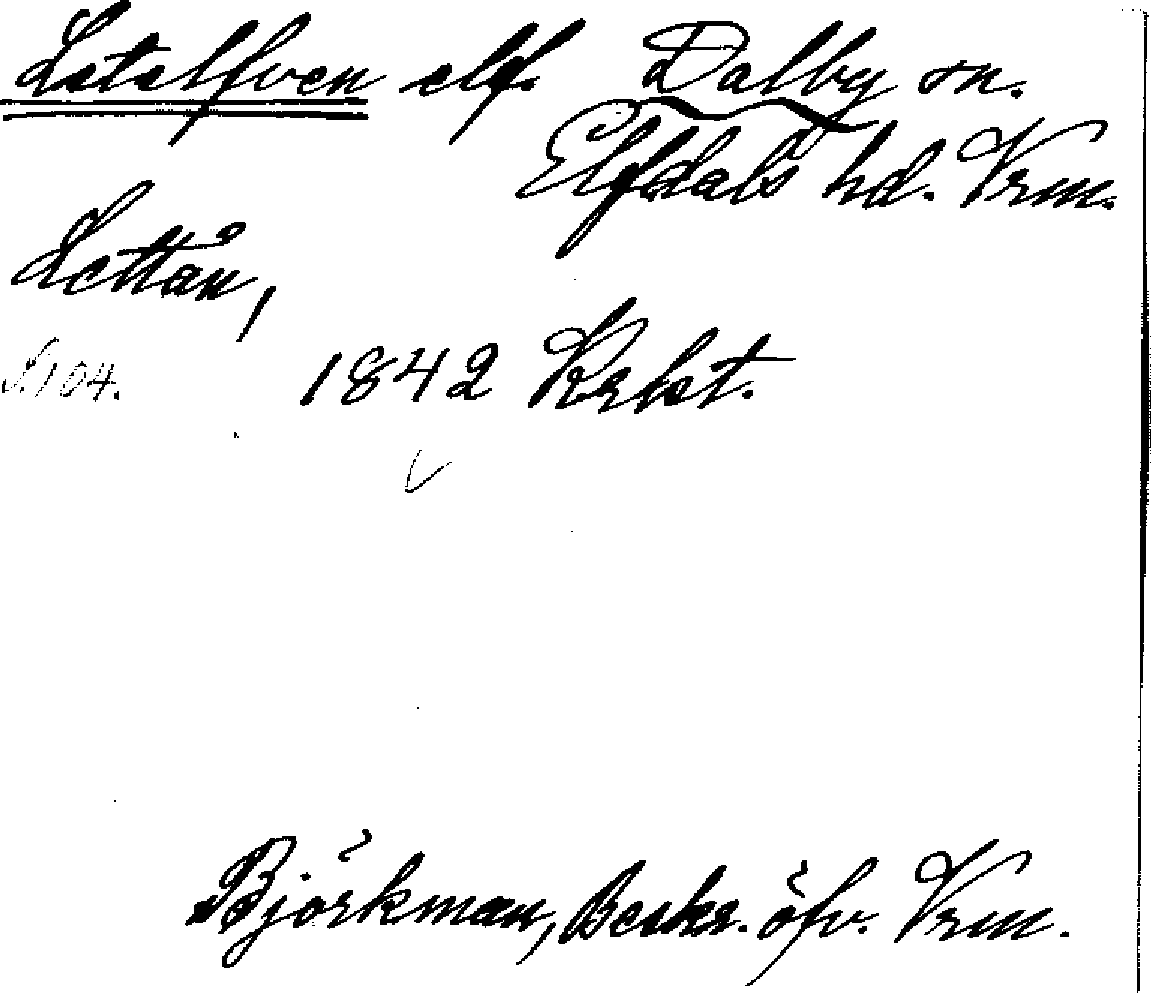 Letelfven elf. Dalby sn.
Elfdals hd. Vrm.
Lettån,
S. 104. 1842 Krlst.
Björkman, Beskr. öfv. Vrm.